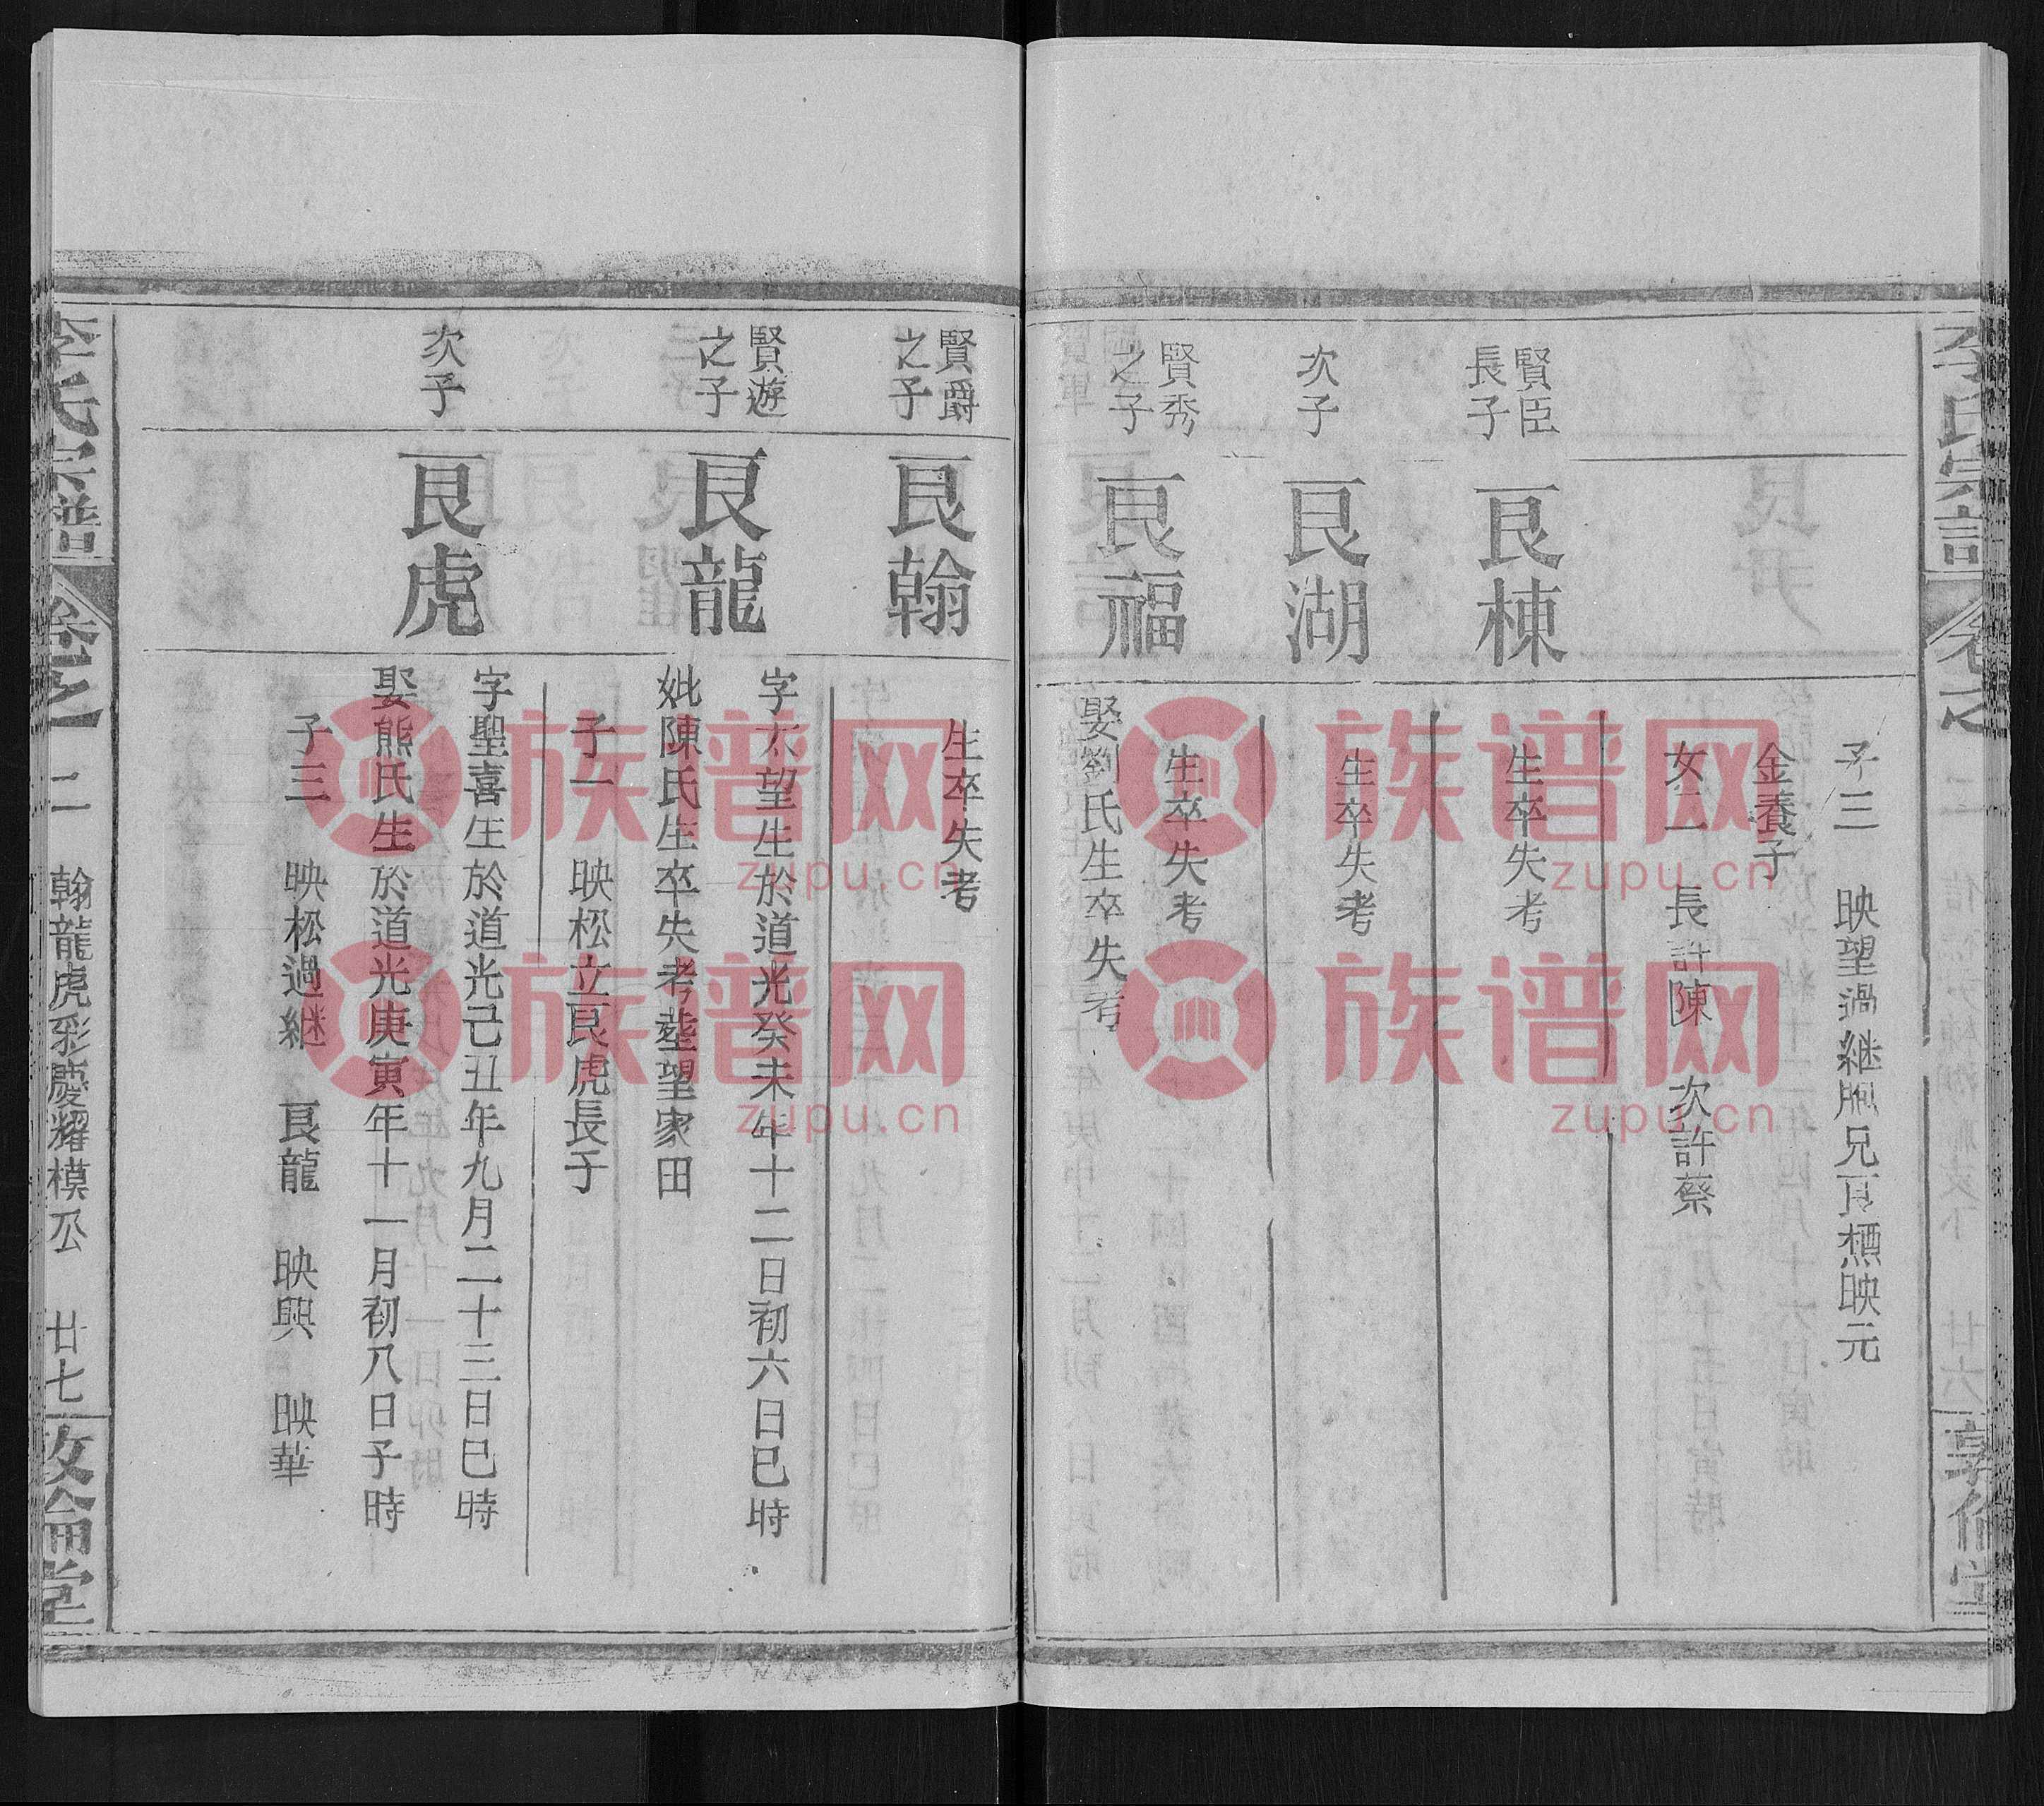 李氏宗譜
卷之
廿六
敦倫堂
子三 映望過繼胞兄艮標映元
金養子
女二 長許陳 次許蔡
賢臣
長子
艮棟
生卒失考
次子
艮湖
生卒失考
賢秀
之子
艮福
生卒失考
娶劉氏生卒失考
賢爵
之子
艮翰
生卒失考
賢遊
之子
艮龍
字太望生於道光癸未年十二日初六日巳時
妣陳氏生卒失考塟望家田
子一 映松立艮虎長子
次子
艮虎
字聖喜生於道光己丑年九月二十三日巳時
娶熊氏生於道光庚寅年十一月初八日子時
子三 映松過繼 艮龍 映興 映華
李氏宗譜
卷之一
二 翰龍虎彩慶耀模公
廿七
敦倫堂
族谱网
zupu.cn
族谱网
zupu.cn
族谱网
zupu.cn
族谱网
zupu.cn